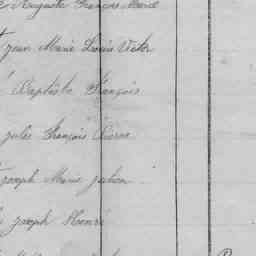 Auguste François Marie
Jean Marie Louis Victor
Baptiste François
jules François Pierre
joseph Marie julien
joseph Henri